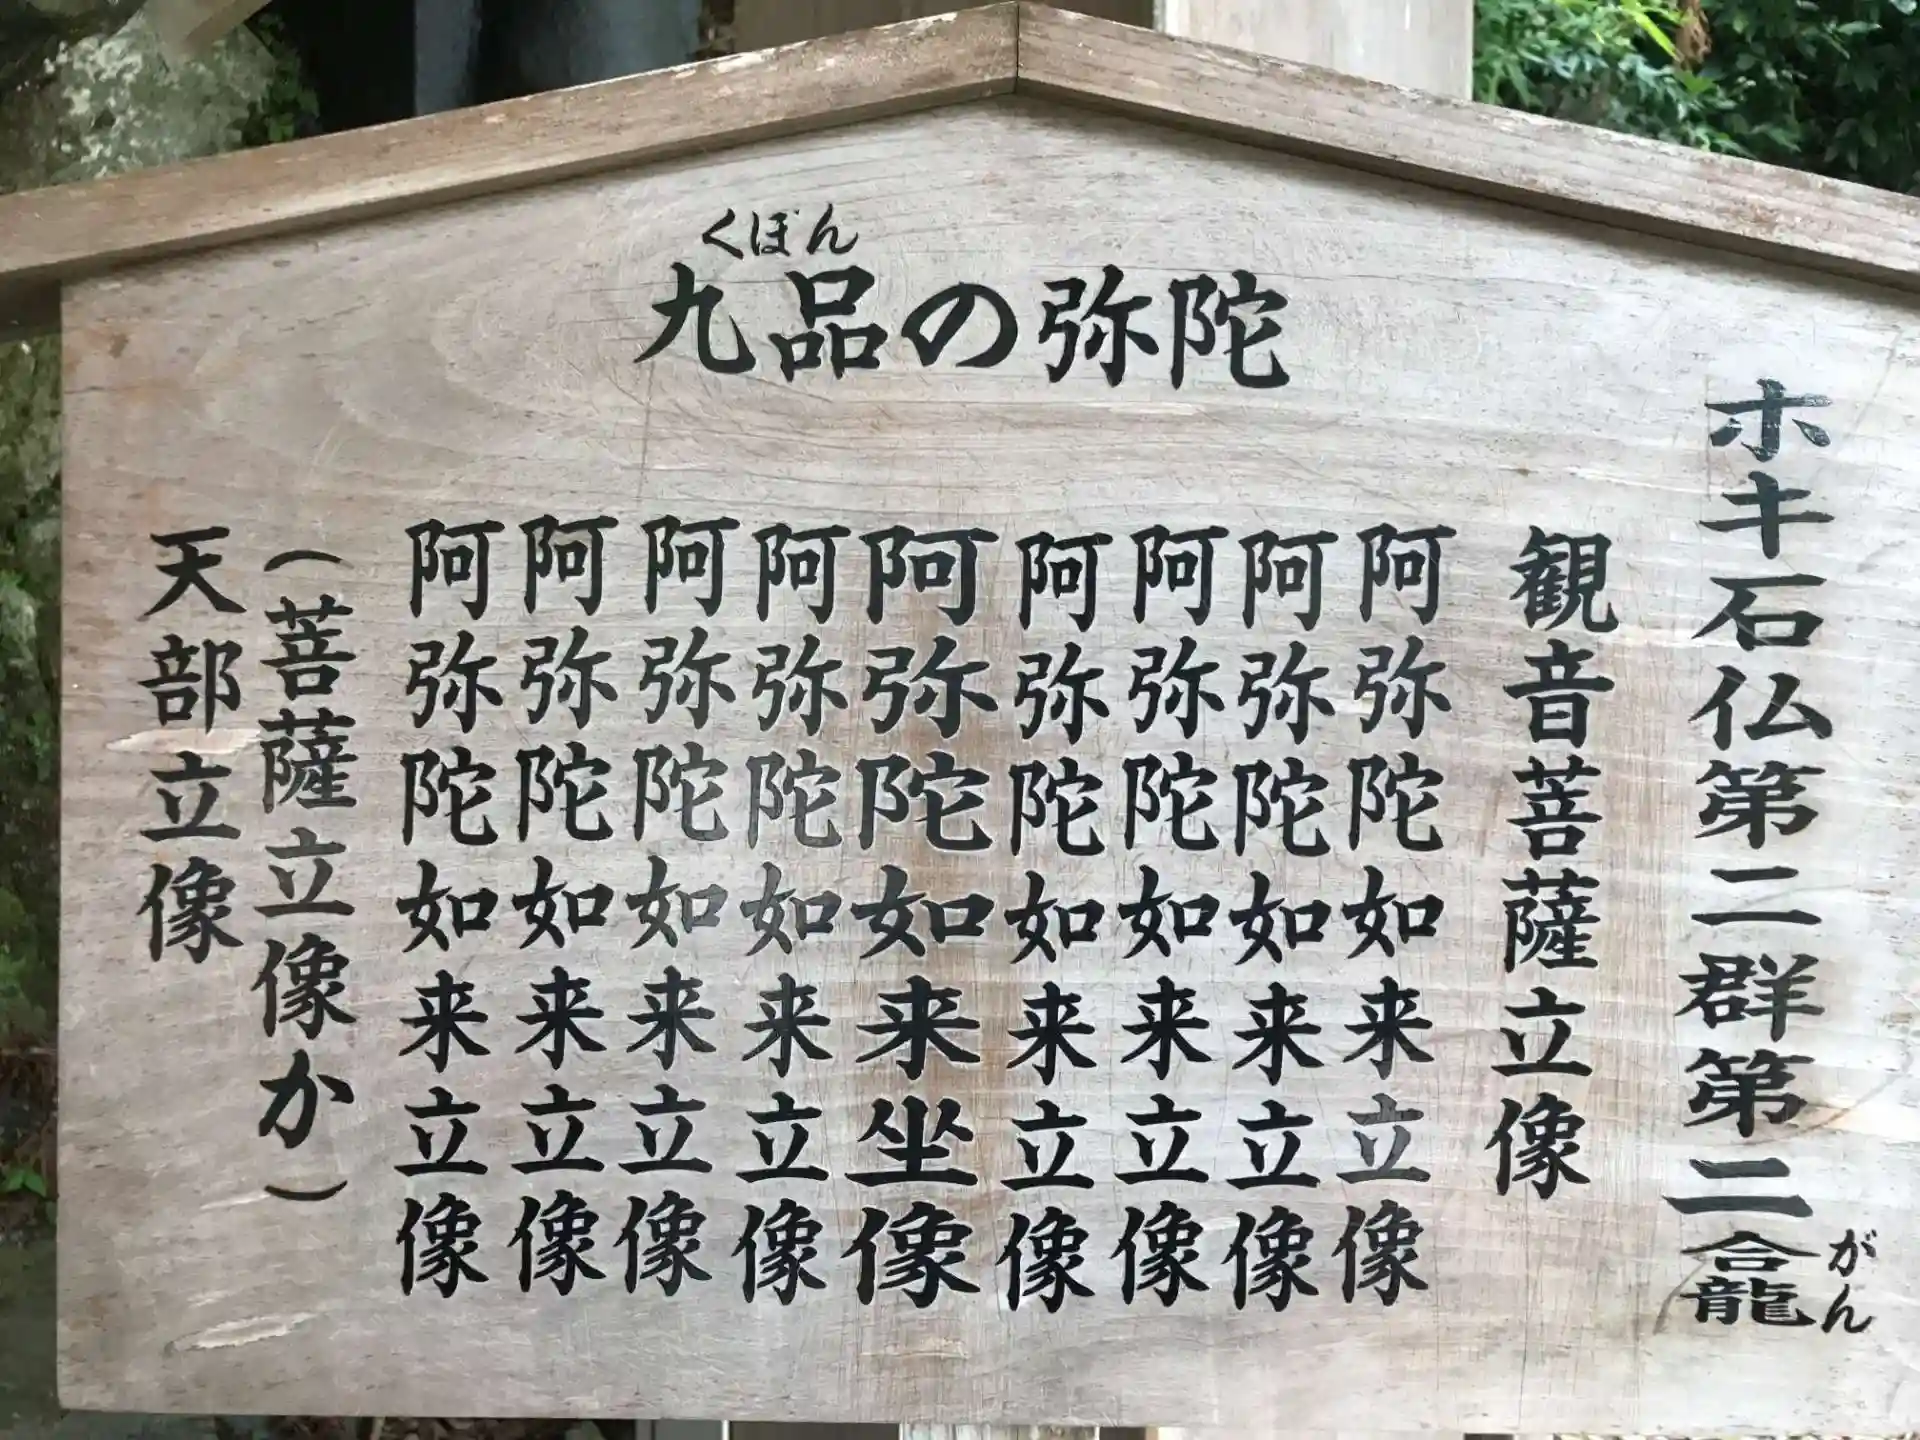 くぼん
九品の弥陀
ホキ石仏第二群第二龕
がん
観音菩薩立像
阿弥陀如来立像
阿弥陀如来立像
阿弥陀如来立像
阿弥陀如来立像
阿弥陀如来坐像
阿弥陀如来立像
阿弥陀如来立像
阿弥陀如来立像
阿弥陀如来立像
(菩薩立像か)
天部立像